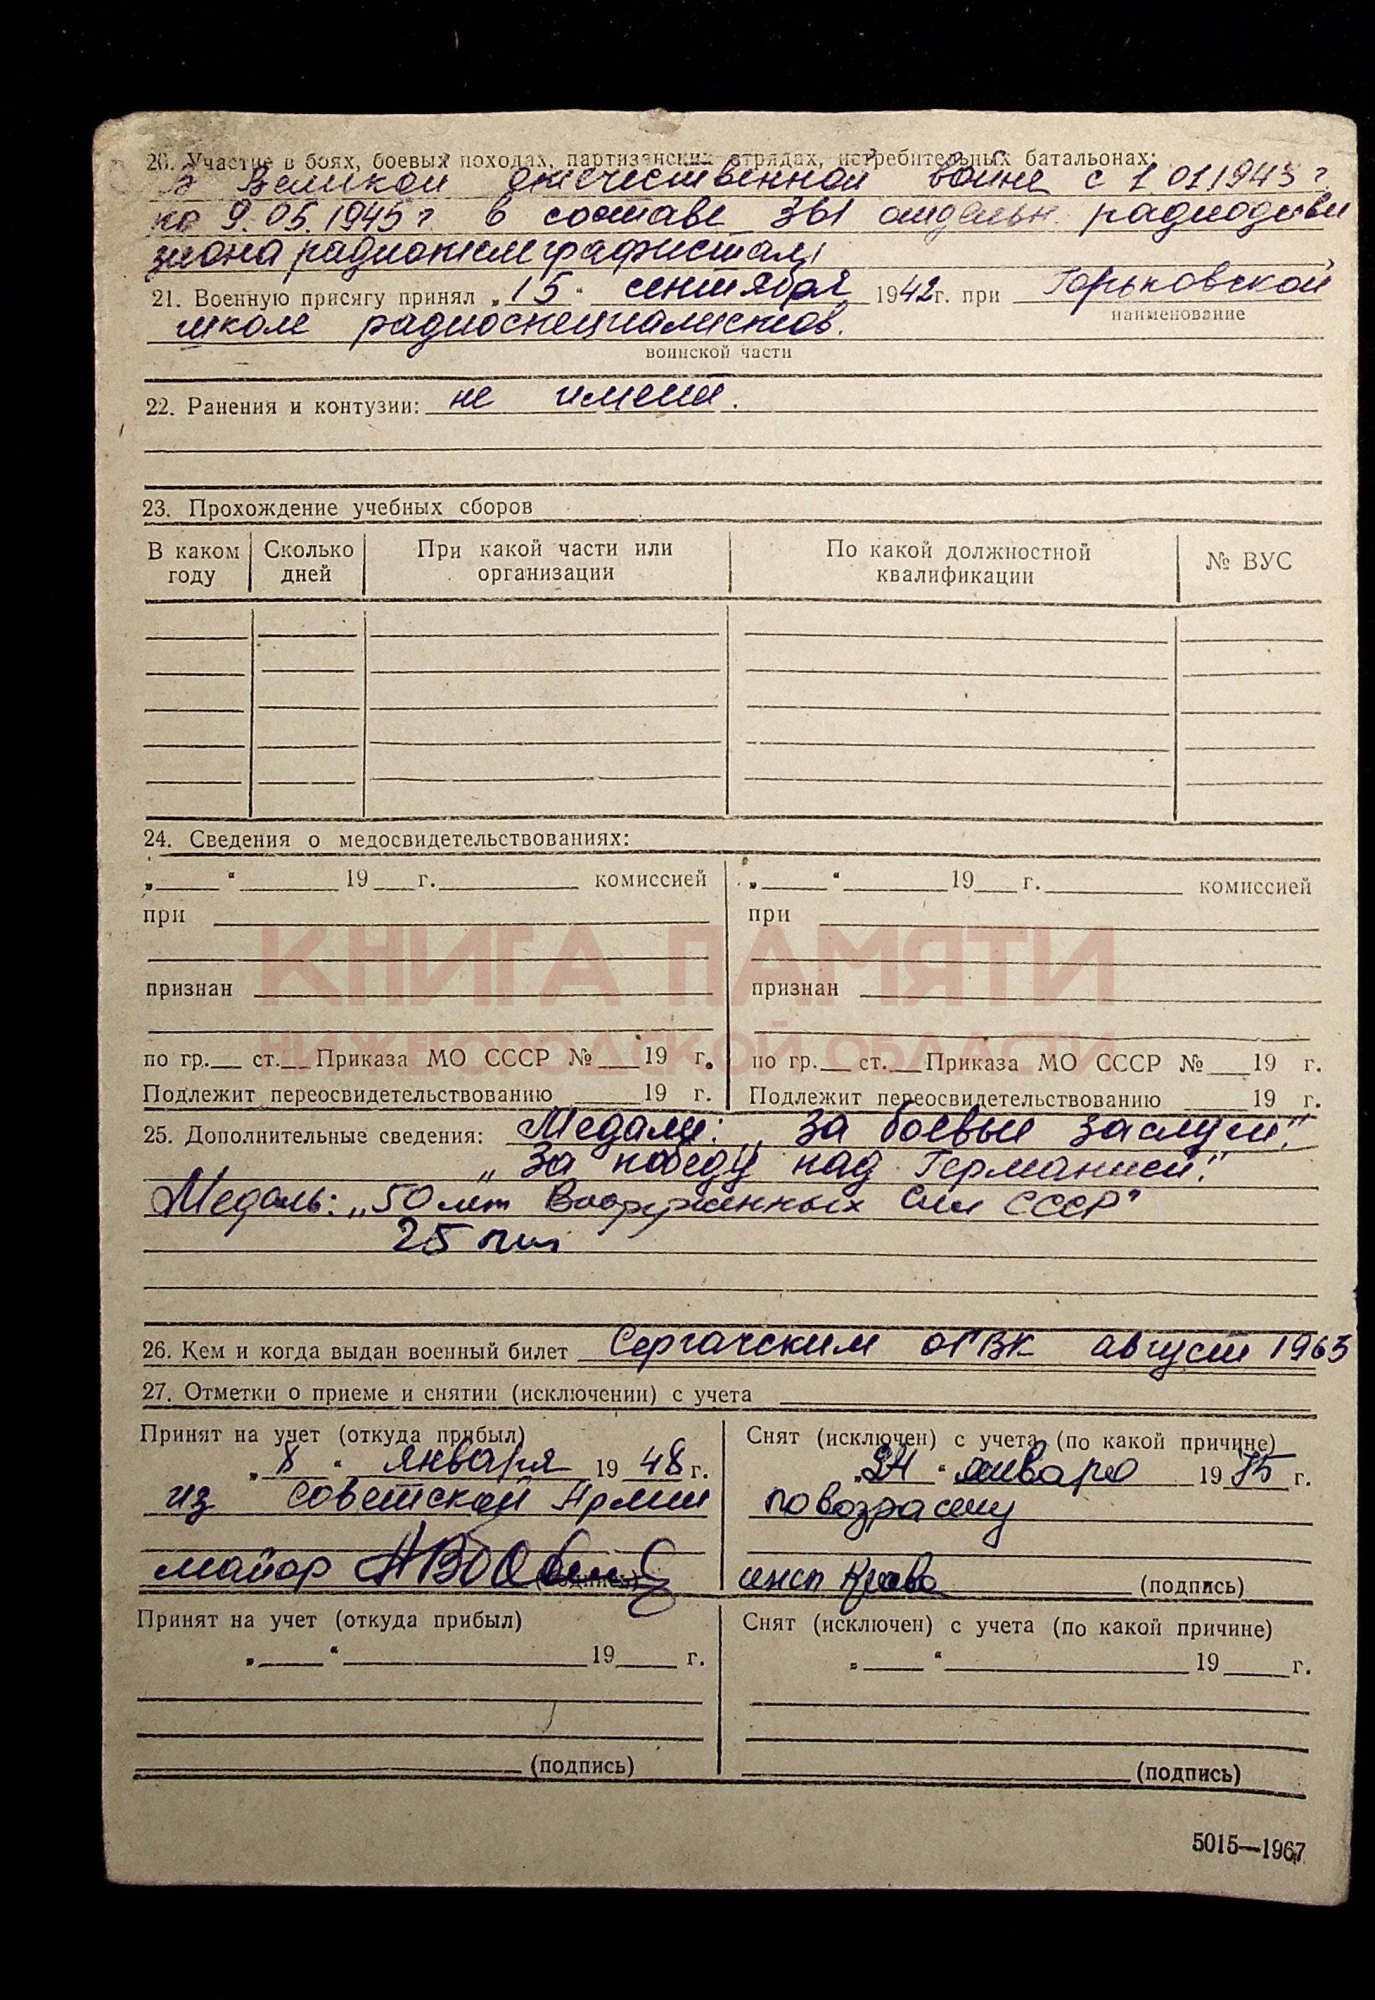 20. Участие в боях, боевых походах, партизанских отрядах, истребительных батальонах:
В Великой отечественной войне с 1.01.1943 г
по 9.05.1945 г в составе 361 отдельн. радиодиви
зиона радиотелеграфистам
21. Военную присягу принял „15“ сентября 1942 г. при Горьковской
наименование
школе радиоспециалистов.
воинской части
22. Ранения и контузии: не имеет.
23. Прохождение учебных сборов
В каком году Сколько дней При какой части или организации По какой должностной квалификации № ВУС
24. Сведения о медосвидетельствованиях:
„ “ 19 г. комиссией „ “ 19 г. комиссией
при при
КНИГА ПАМЯТИ
признан признан
НИЖЕГОРОДСКОЙ ОБЛАСТИ
по гр. ст. Приказа МО СССР № 19 г. по гр. ст. Приказа МО СССР № 19 г.
Подлежит переосвидетельствованию 19 г. Подлежит переосвидетельствованию 19 г.
25. Дополнительные сведения: Медали: „За боевые заслуги“.
„За победу над Германией“.
Медаль: „50 лет Вооруженных Сил СССР“
25 лет
26. Кем и когда выдан военный билет Сергачским ОГВК август 1963
27. Отметки о приеме и снятии (исключении) с учета
Принят на учет (откуда прибыл) Снят (исключен) с учета (по какой причине)
„8“ января 1948 г. „24“ января 1975 г.
из Советской Армии по возрасту
майор (подпись) инсп (подпись)
Принят на учет (откуда прибыл) Снят (исключен) с учета (по какой причине)
„ “ 19 г. „ “ 19 г.
(подпись) (подпись)
5015—1967